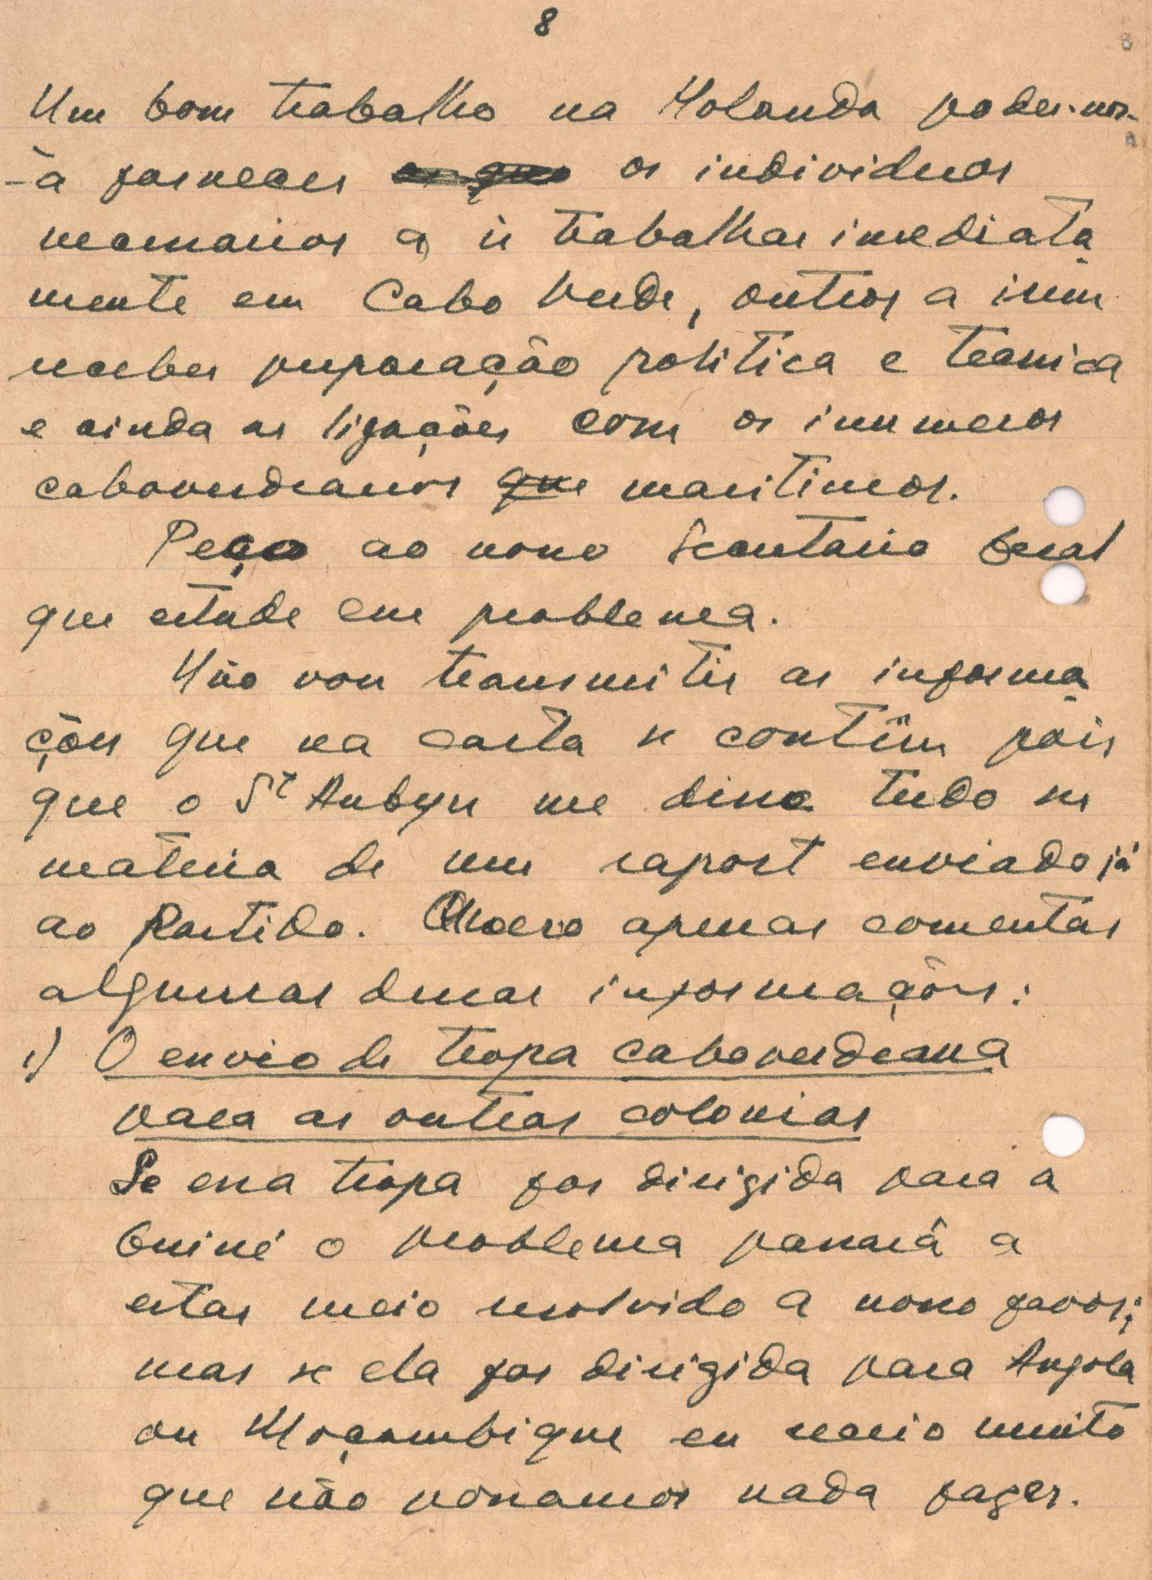 8
Um bom trabalho na Holanda poder-nos-
-à fornecer os individuos
necessarios a ir trabalhar imediata
mente em Cabo Verde, outros a irem
receber preparação politica e tecnica
e ainda as ligações com os inumeros
caboverdeanos que maritimos.
Peço ao nosso Secretario Geral
que estude esse problema.
Não vou transmitir as informa
ções que na carta se contêm pois
que o St Aubyn me disse tudo ser
materia de um raport enviado já
ao Partido. Quero apenas comentar
algumas dessas informações:
1) O envio de tropa caboverdeana
para as outras colonias
Se essa tropa for dirigida para a
Guiné o problema passará a
estar meio resolvido a nosso favor;
mas se ela for dirigida para Angola
ou Moçambique eu receio muito
que não possamos nada fazer.